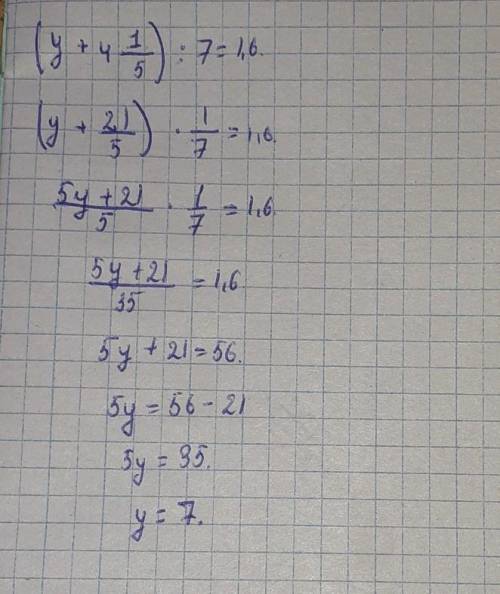 (y + 4 1/5) : 7 = 1,6.
(y + 21/5) · 1/7 = 1,6.
5y + 21/5 · 1/7 = 1,6
5y + 21/35 = 1,6
5y + 21 = 56.
5y = 56 - 21
5y = 35.
y = 7.